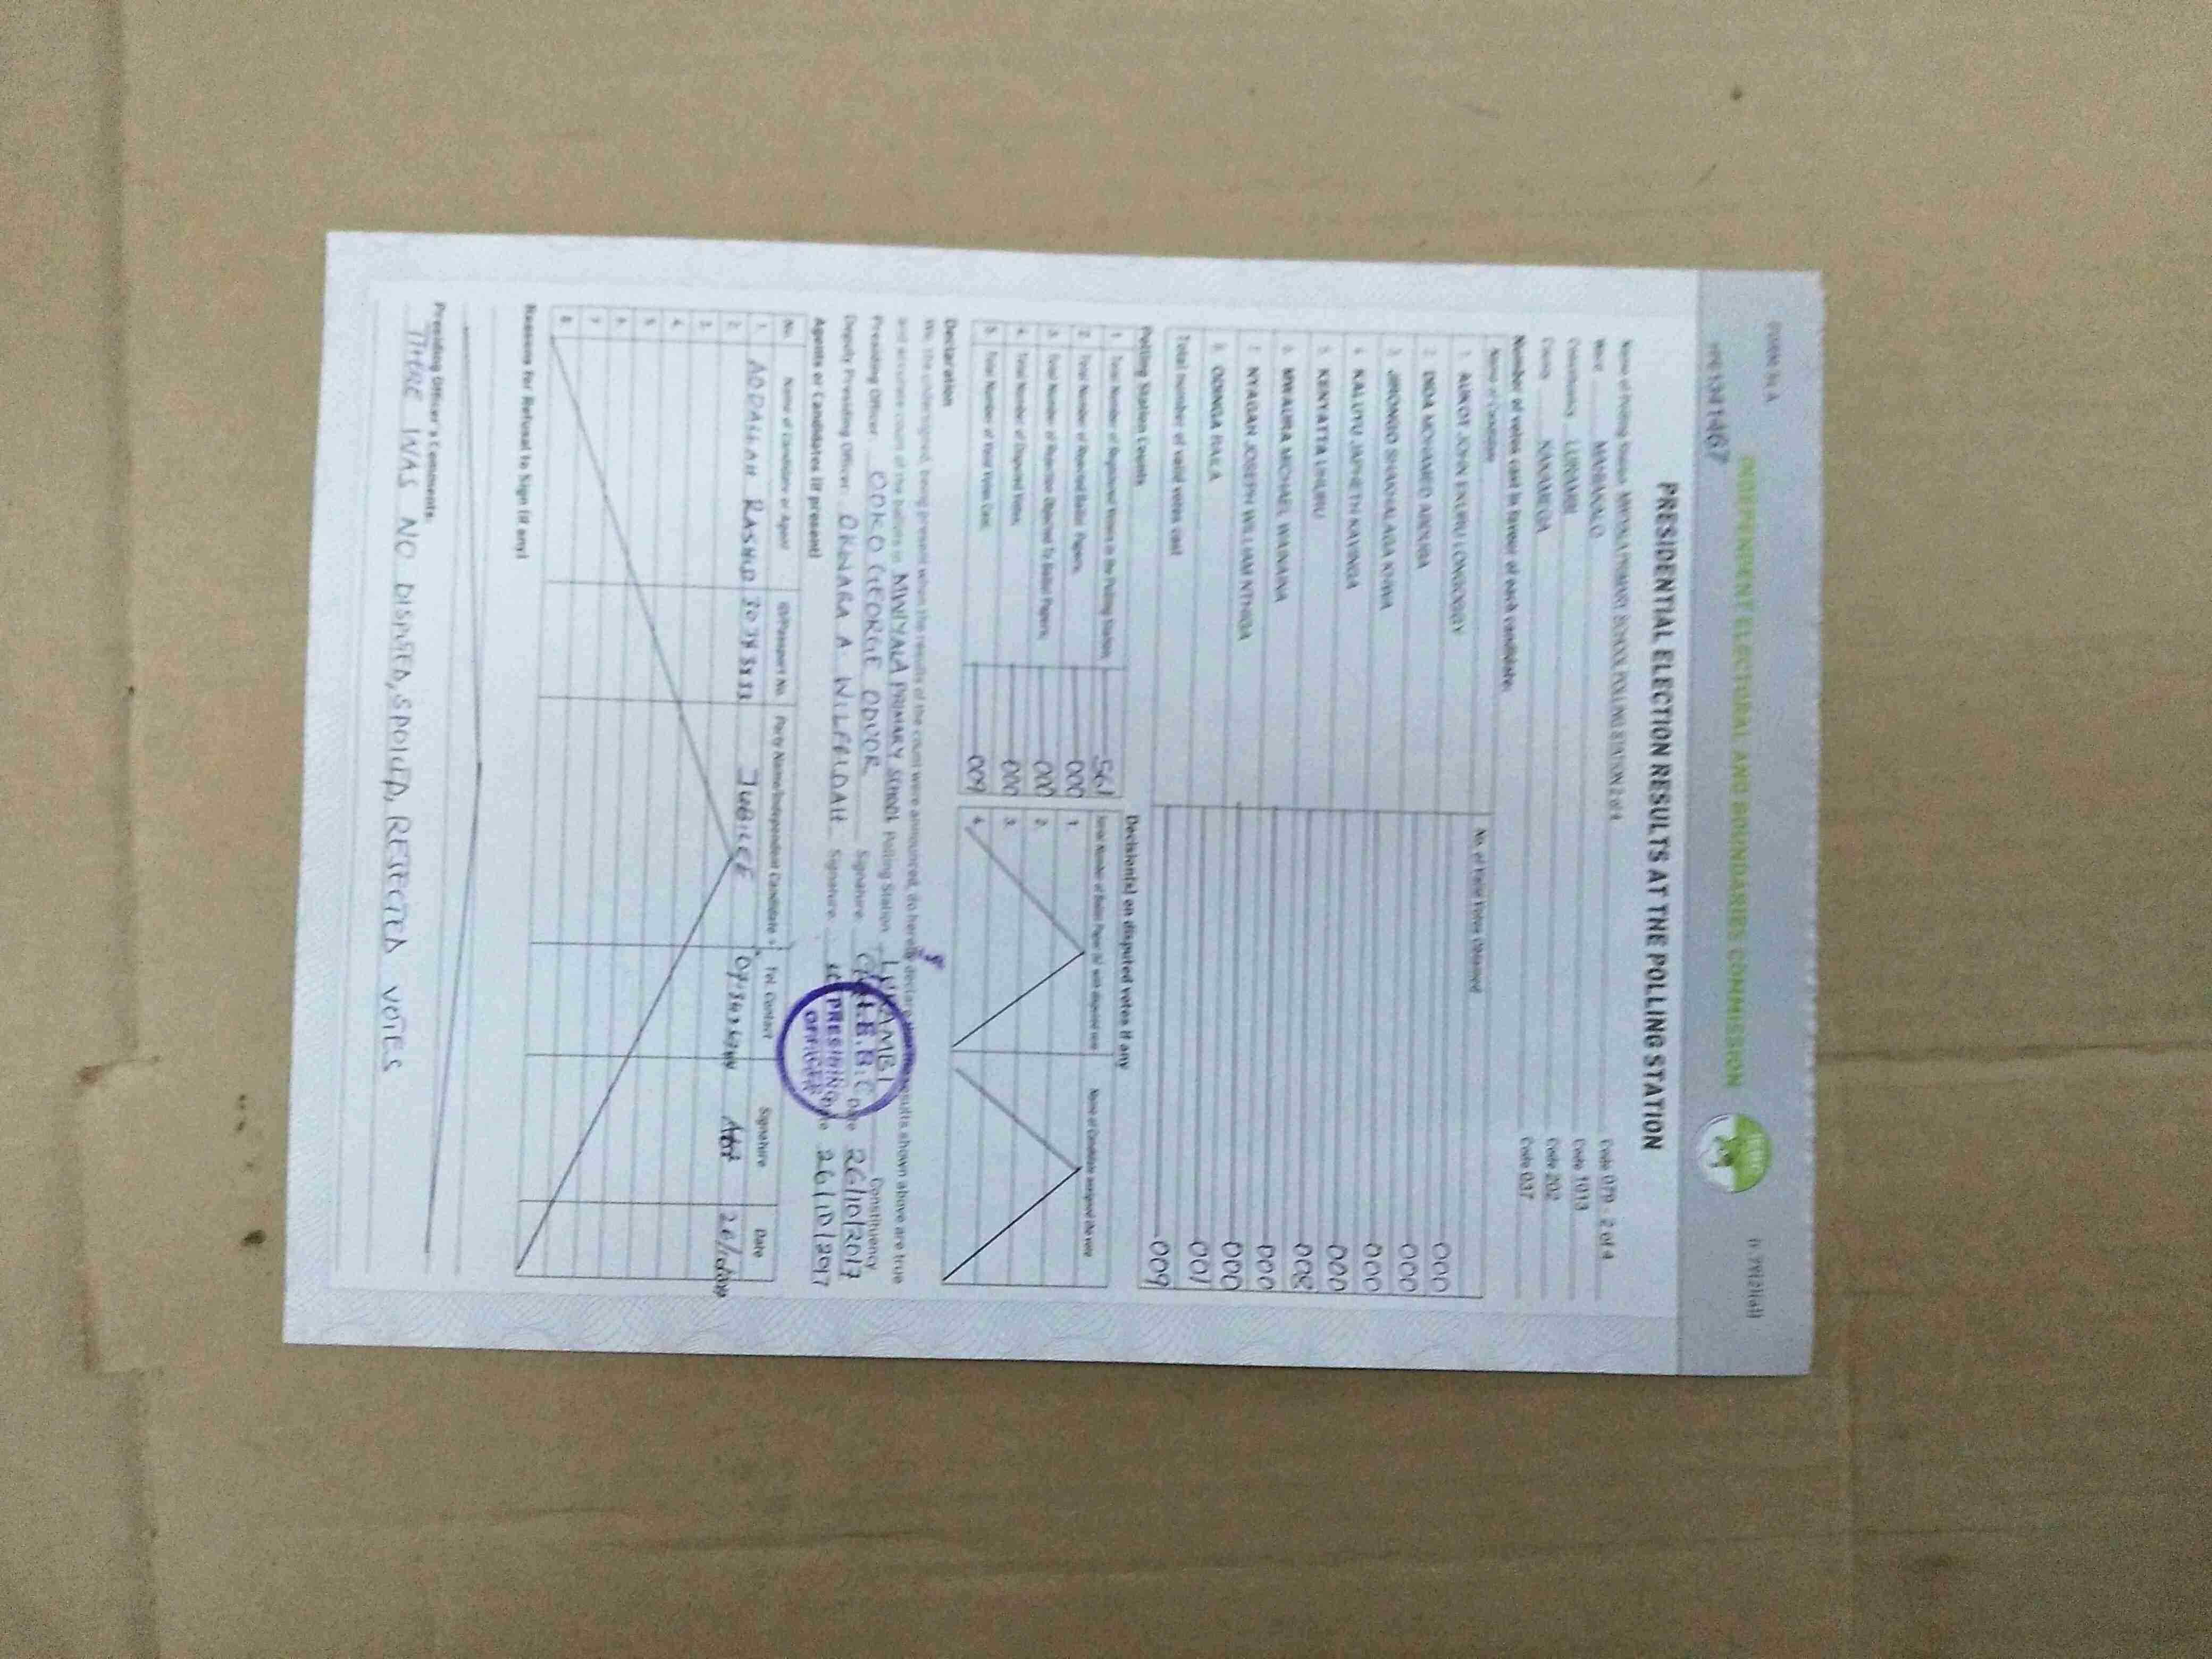 FORM 34 A
INDEPENDENT ELECTORAL AND BOUNDARIES COMMISSION
PRESIDENTIAL ELECTION RESULTS AT THE POLLING STATION
Name of Polling Station PRIMARY SCHOOL POLLING STATION 2 of 4 Code 079 - 2 of 4
Ward MAHIAKALO Code 1013
Constituency LURAMBI Code 202
County KAKAMEGA Code 037
Number of votes cast in favour of each candidate:
Name of Candidate No. of Valid Votes Obtained
1. AUKOT JOHN EKURU LONGOGGY 000
2. DIDA MOHAMED ABDUBA 000
3. JIRONGO SHAKHALAGA KHWA 000
4. KALUYU JAPHETH KAVINGA 000
5. KENYATTA UHURU 008
6. MWAURA MICHAEL WAINAINA 000
7. NYAGAH JOSEPH WILLIAM NTHIGA 000
8. ODINGA RAILA 001
Total number of valid votes cast 009
Polling Station Counts
1. Total Number of Registered Voters in the Polling Station 561
2. Total Number of Rejected Ballot Papers 000
3. Total Number of Rejection Objected To Ballot Papers 000
4. Total Number of Disputed Votes 000
5. Total Number of Valid Votes Cast 009
Decision(s) on disputed votes if any
Serial Number of Ballot Paper (s) with disputed vote Name of Candidate assigned the vote
1.
2.
3.
4.
Declaration
We, the undersigned, being present when the results of the count were announced, do hereby declare that the results shown above are true
and accurate count of the ballots in MWIYALA PRIMARY SCHOOL Polling Station LURAMBI Constituency
Presiding Officer ODUOR Signature Date 26/10/2017
Deputy Presiding Officer Signature Date 26/10/2017
I.E.B.C
PRESIDING
OFFICER
Agents or Candidates (if present)
No. Name of Candidate or Agent ID/Passport No. Party Name/Independent Candidate Tel. Contact Signature Date
1. JUBILEE
2.
3.
4.
5.
6.
7.
8.
Reasons for Refusal to Sign (if any)
Presiding Officer's Comments
THERE WAS NO DISPUTED, SPOILED, REJECTED VOTES